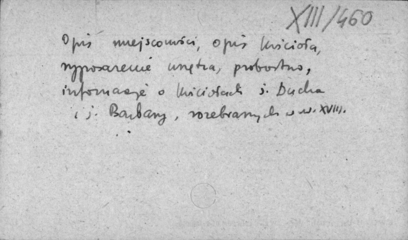 XIII/460
Opis miejscowości, opis kościoła,
wyposażenie wnętrza, probostwo,
informacje o kościołach ś. Ducha
i ś. Barbary, rozebranych w w. XVIII.